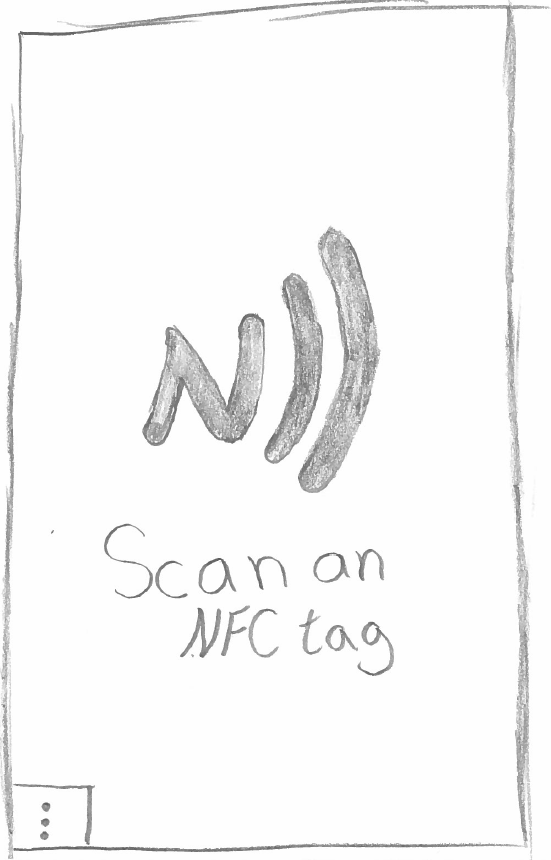 N
Scan an
NFC tag